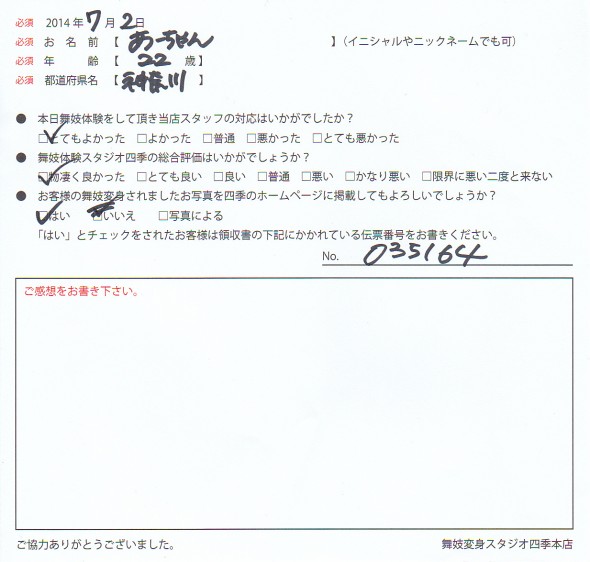 必須 2014年7月2日
必須 お名前【 あっちゃん 】（イニシャルやニックネームでも可）
必須 年 齢【 22 歳】
必須 都道府県名【 神奈川 】
● 本日舞妓体験をして頂き当店スタッフの対応はいかがでしたか？
☑とてもよかった □よかった □普通 □悪かった □とても悪かった
● 舞妓体験スタジオ四季の総合評価はいかがでしょうか？
☑物凄く良かった □とても良い □良い □普通 □悪い □かなり悪い □限界に悪い二度と来ない
● お客様の舞妓変身されましたお写真を四季のホームページに掲載してもよろしいでしょうか？
☑はい □いいえ □写真による
「はい」とチェックをされたお客様は領収書の下記にかかれている伝票番号をお書きください。
No. 035164
ご感想をお書き下さい。
ご協力ありがとうございました。 舞妓変身スタジオ四季本店